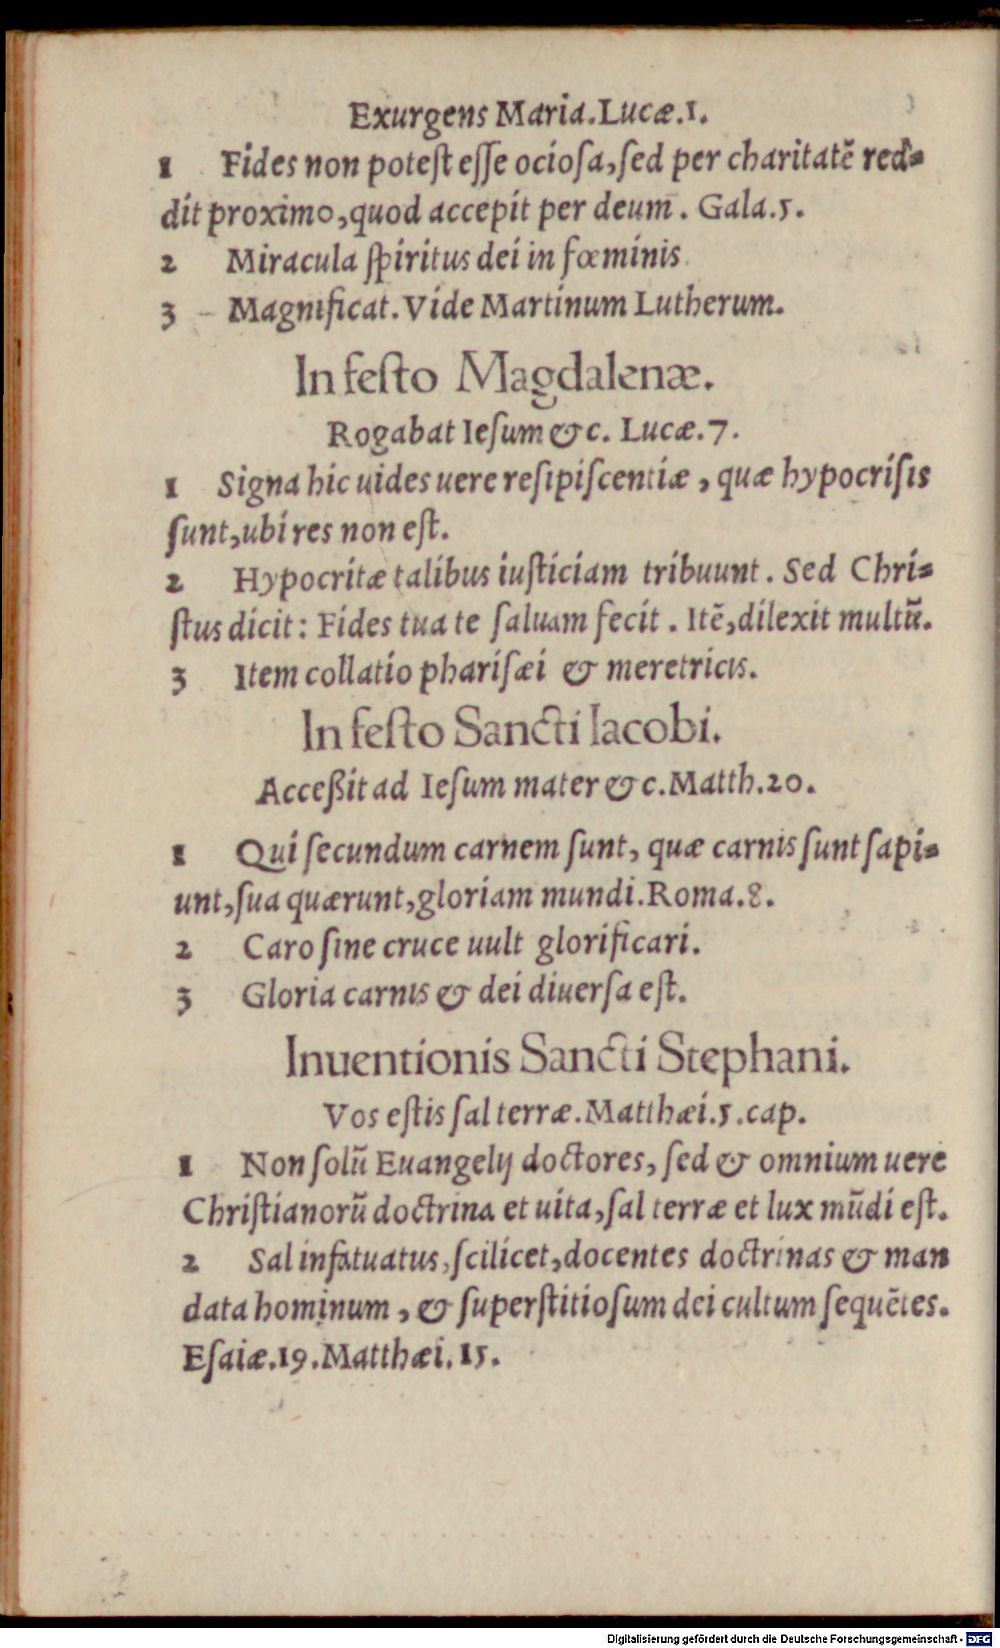 Exurgens Maria.Lucæ.1.
1 Fides non poteſt eſſe ocioſa,ſed per charitatẽ red=
dit proximo,quod accepit per deum . Gala.5.
2 Miracula ſpiritus dei in fœminis.
3 Magnificat.Vide Martinum Lutherum.
In feſto Magdalenæ.
Rogabat Ieſum &c. Lucæ.7.
1 Signa hic uides uere reſipiſcentiæ , quæ hypocriſis
ſunt,ubi res non eſt.
2 Hypocritæ talibus iuſticiam tribuunt . Sed Chri=
ſtus dicit : Fides tua te ſaluam fecit . Itẽ,dilexit multũ.
3 Item collatio phariſæi & meretricis.
In feſto Sancti Iacobi.
Acceßit ad Ieſum mater &c.Matth.20.
1 Qui ſecundum carnem ſunt, quæ carnis ſunt ſapi=
unt,ſua quærunt,gloriam mundi.Roma.8.
2 Caro ſine cruce uult glorificari.
3 Gloria carnis & dei diuerſa eſt.
Inuentionis Sancti Stephani.
Vos eſtis ſal terræ.Matthæi.5.cap.
1 Non ſolũ Euangelij doctores, ſed & omnium uere
Chriſtianorũ doctrina et uita,ſal terræ et lux mũdi eſt.
2 Sal infatuatus,ſcilicet,docentes doctrinas & man
data hominum , & ſuperſtitioſum dei cultum ſequẽtes.
Eſaiæ.19.Matthæi.15.
Digitalisierung gefördert durch die Deutsche Forschungsgemeinschaft - DFG